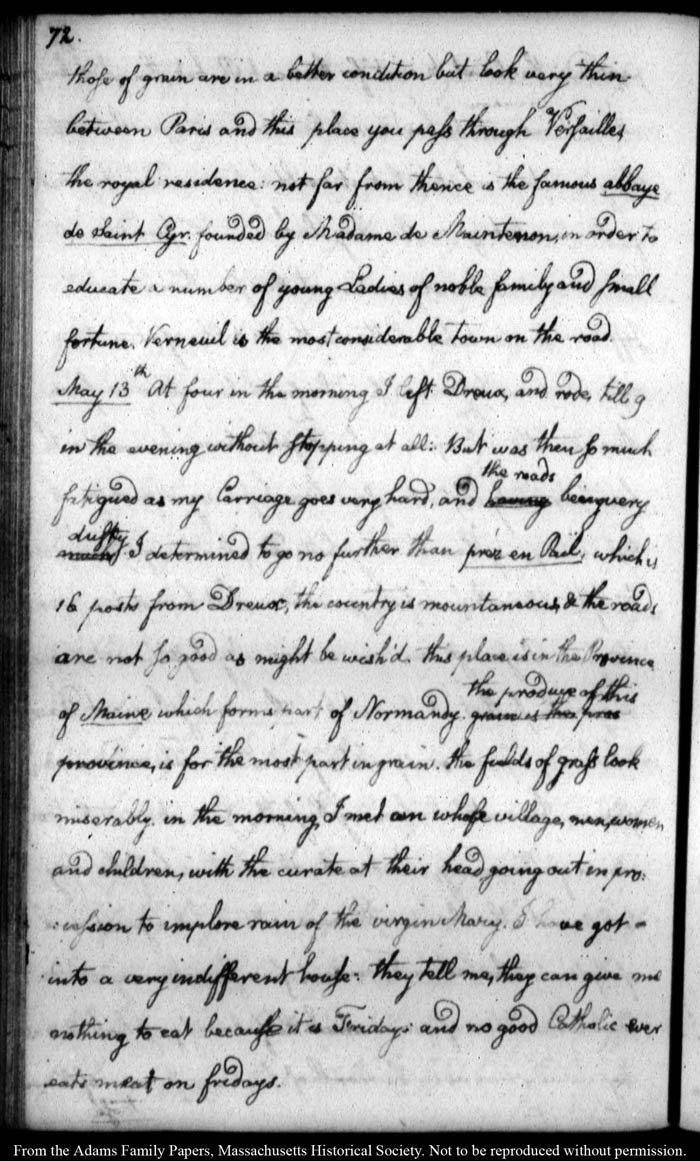 72.
those of grain are in a better condition but look very thin
between Paris and this place you pass through Versailles,
the royal residence: not far from thence is the famous abbaye
de Saint Cyr. founded by Madame de Maintenon, in order to
educate a number of young Ladies of noble family and small
fortune. Verneuil is the most considerable town on the road.
May 13th At four in the morning I left Dreux, and rode, till 9
in the evening without stopping at all: But was then so much
the roads
fatigued as my Carriage goes very hard, and having being very
dusty
I determined to go no further than préz en Pail, which is
16 posts from Dreux, the country is mountaneous, & the roads
are not so good as might be wish'd. this place is in the Province
the produce of this
of Maine which forms part of Normandy. grain is the
province, is for the most part in grain. the fields of grass look
miserably. in the morning, I met an whole village, men, women
and children, with the curate at their head going out in pro:
:cession to implore rain of the virgin Mary. I have got =
into a very indifferent house: they tell me, they can give me
nothing to eat because it is Friday: and no good Catholic ever
eats meat on fridays.
From the Adams Family Papers, Massachusetts Historical Society. Not to be reproduced without permission.